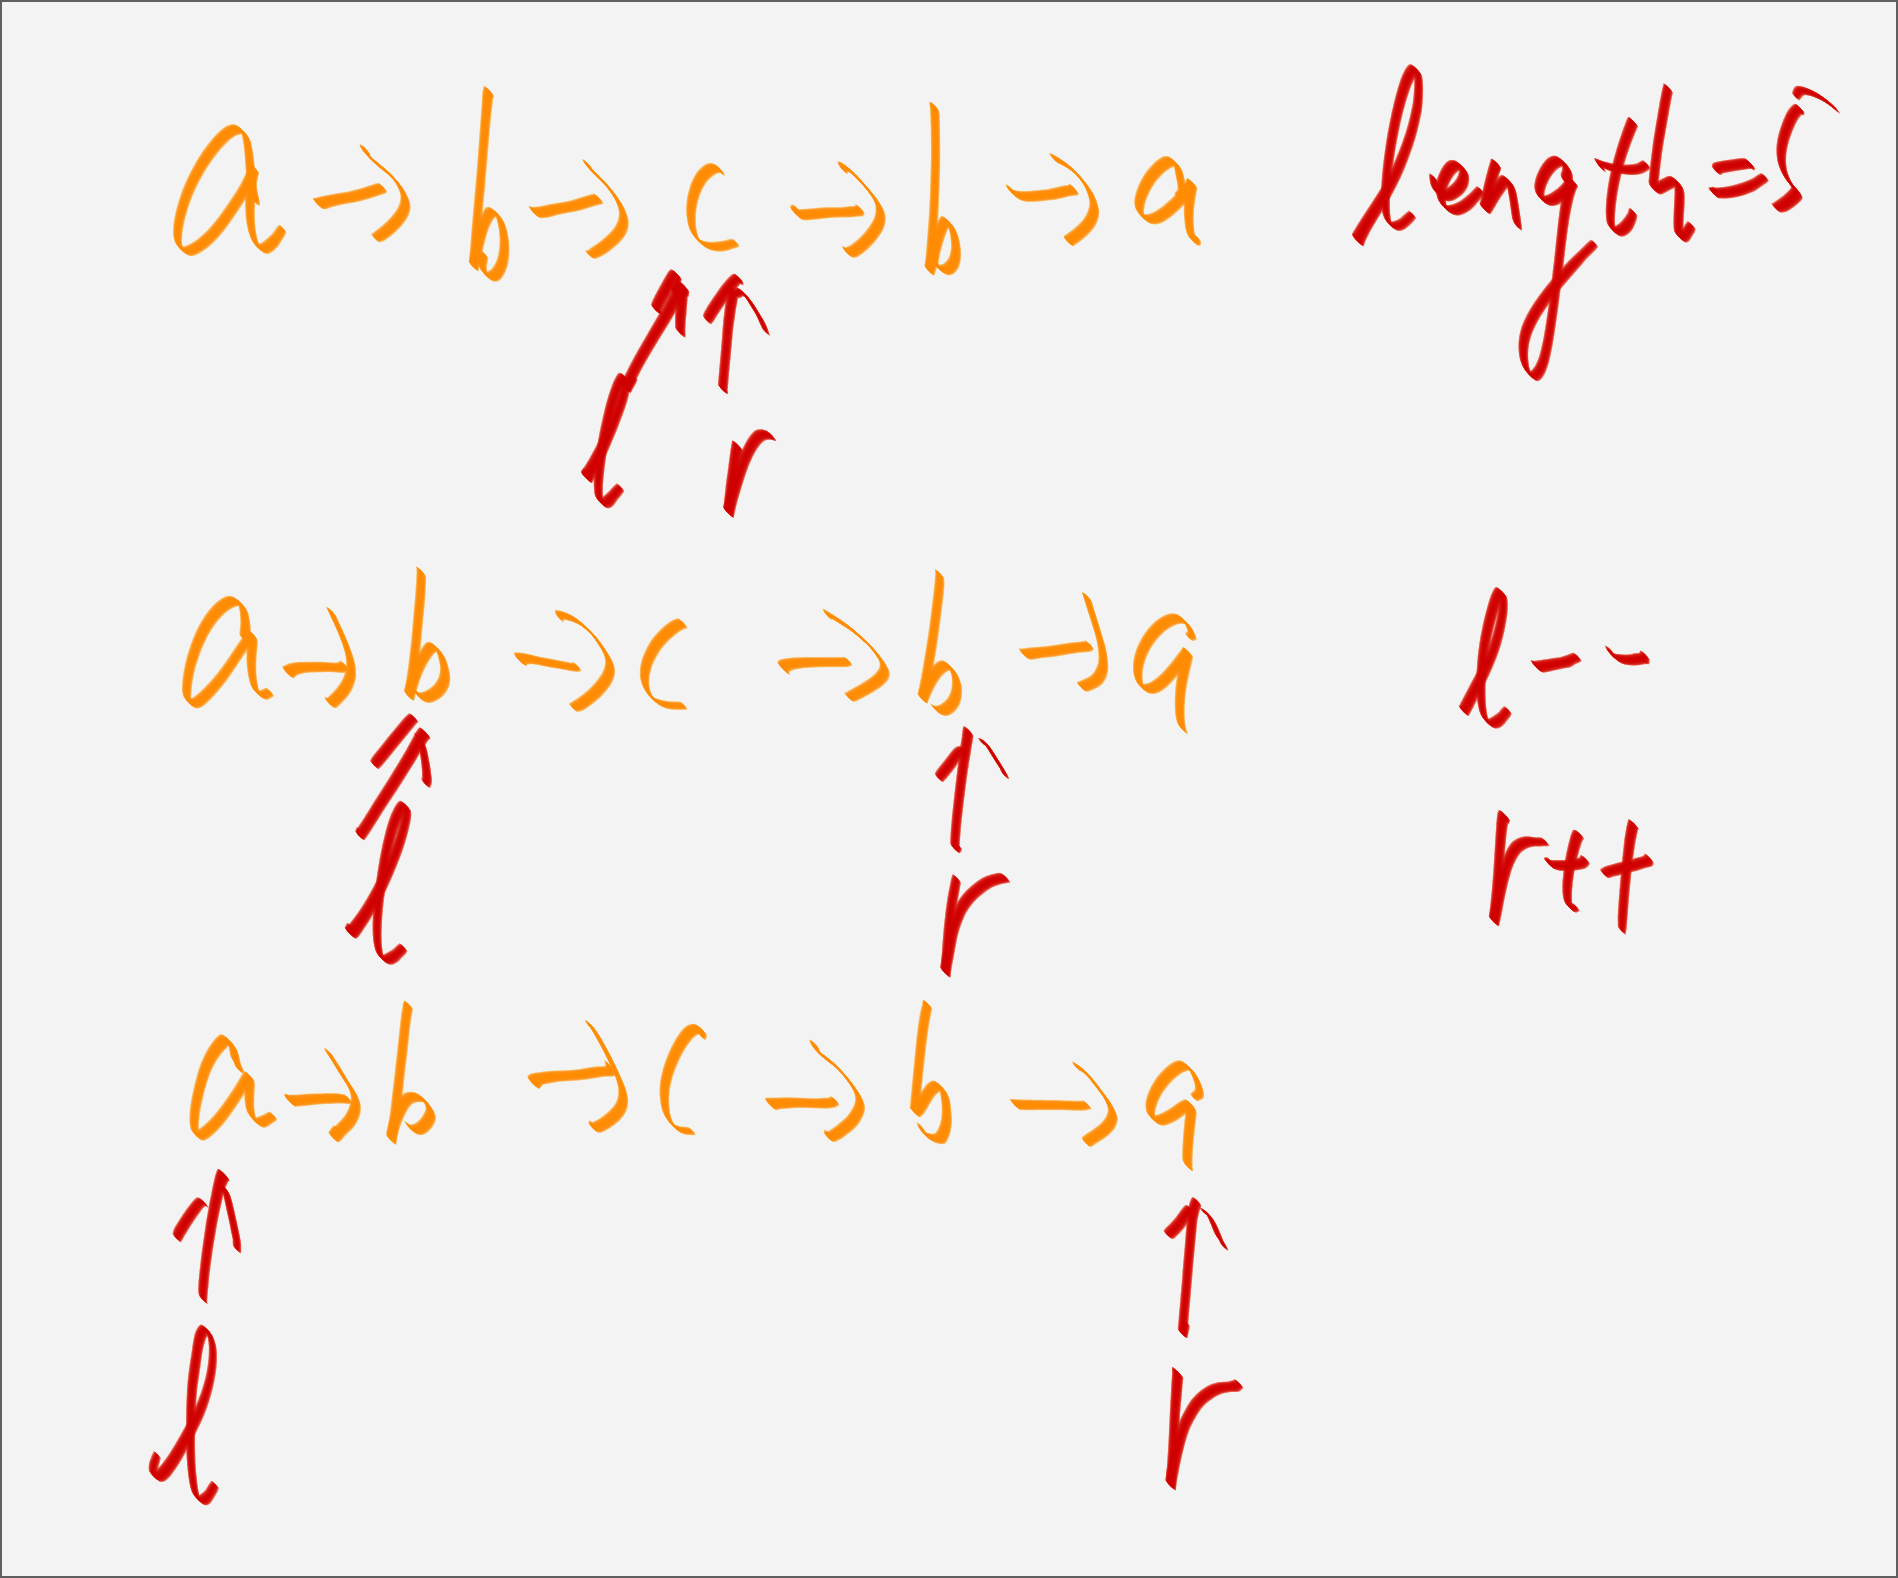 a → b → c → b → a length=5
l r
a → b → c → b → a l--
r++
l r
a → b → c → b → a
l r